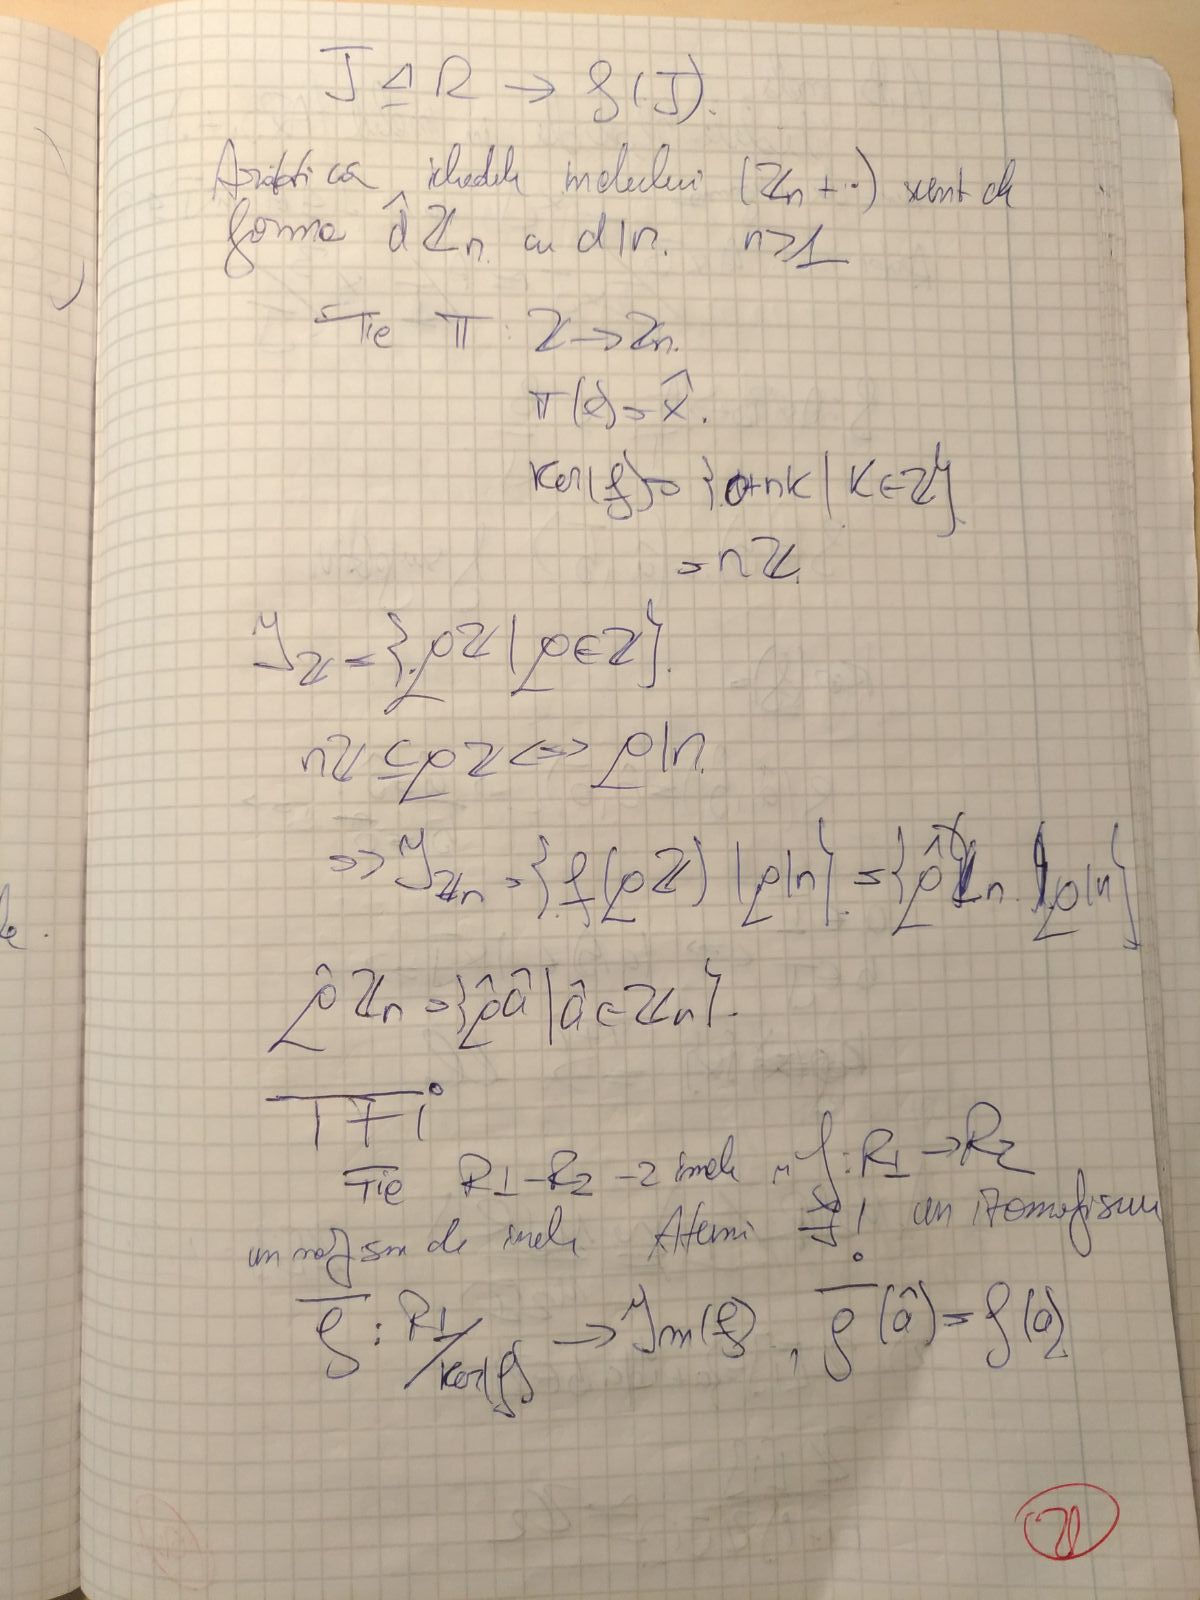 J ⊴ R → f(J).
Arătați că idealele inelului (ℤn + ·) sunt de
forma d̂ ℤn cu d|n. n>1
Fie π : ℤ → ℤn.
π(x) = x̂.
Ker(f) = {0+nk | k∈ℤ}
= nℤ
𝓘ℤ = {pℤ | p∈ℤ}.
nℤ ⊆ pℤ <=> p|n.
=> 𝓘ℤn = {f(pℤ) | p|n} = {p̂ℤn | p|n}
p̂ ℤn = {p̂ â | â∈ℤn}.
TFI
Fie R1-R2 - 2 inele și f: R1 → R2
un morfism de inele Atunci ∃! un izomorfism
f̄ : R1/Ker(f) → Im(f), f̄(â) = f(a)